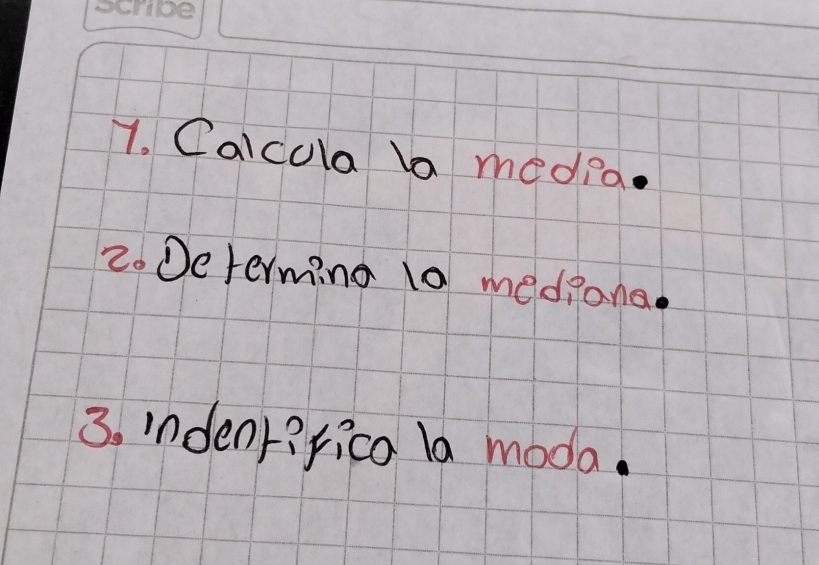 Scribe
1. Calcula la media.
2. Determina la mediana.
3. indentifica la moda.